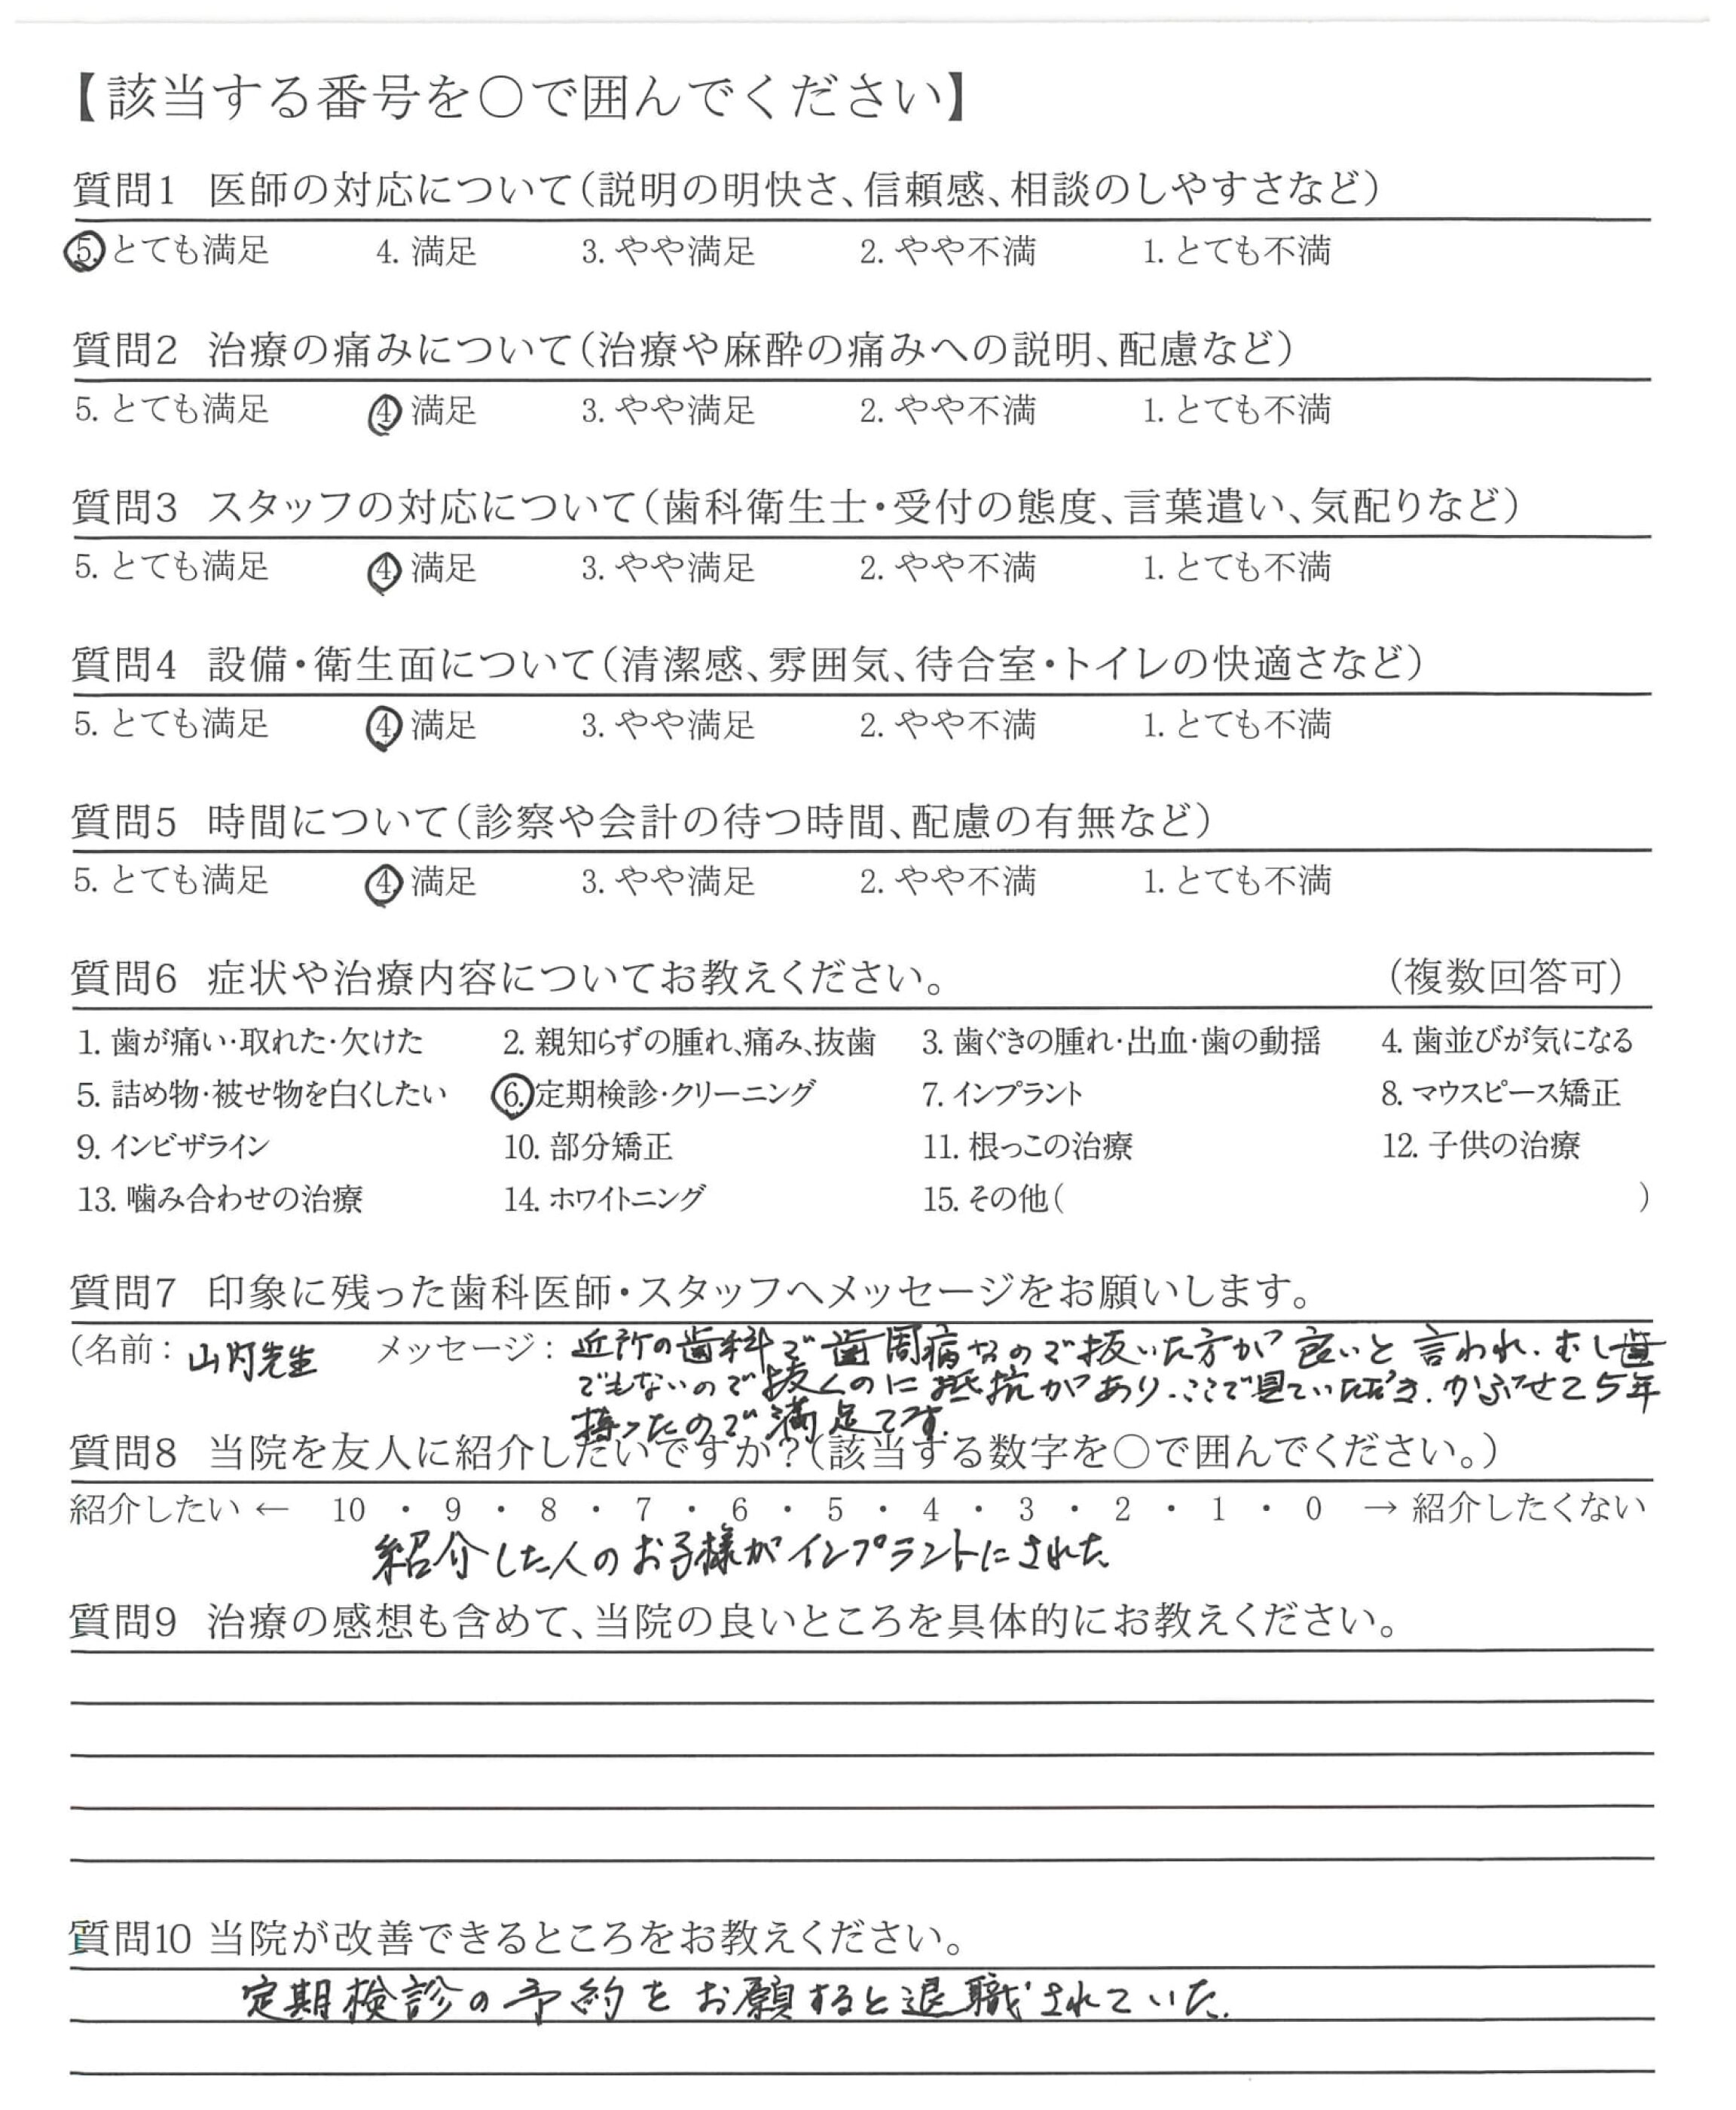 【該当する番号を〇で囲んでください】
質問1 医師の対応について(説明の明快さ、信頼感、相談のしやすさなど)
5. とても満足 4. 満足 3. やや満足 2. やや不満 1. とても不満
質問2 治療の痛みについて(治療や麻酔の痛みへの説明、配慮など)
5. とても満足 4. 満足 3. やや満足 2. やや不満 1. とても不満
質問3 スタッフの対応について(歯科衛生士・受付の態度、言葉遣い、気配りなど)
5. とても満足 4. 満足 3. やや満足 2. やや不満 1. とても不満
質問4 設備・衛生面について(清潔感、雰囲気、待合室・トイレの快適さなど)
5. とても満足 4. 満足 3. やや満足 2. やや不満 1. とても不満
質問5 時間について(診察や会計の待つ時間、配慮の有無など)
5. とても満足 4. 満足 3. やや満足 2. やや不満 1. とても不満
質問6 症状や治療内容についてお教えください。 (複数回答可)
1. 歯が痛い・取れた・欠けた 2. 親知らずの腫れ、痛み、抜歯 3. 歯ぐきの腫れ・出血・歯の動揺 4. 歯並びが気になる
5. 詰め物・被せ物を白くしたい 6. 定期検診・クリーニング 7. インプラント 8. マウスピース矯正
9. インビザライン 10. 部分矯正 11. 根っこの治療 12. 子供の治療
13. 噛み合わせの治療 14. ホワイトニング 15. その他( )
質問7 印象に残った歯科医師・スタッフへメッセージをお願いします。
(名前: 先生 メッセージ: 近所の歯科で歯周病なので抜いた方が良いと言われ、むし歯
でもないので抜くのに抵抗があり、ここで見ていただき、かぶせて5年
持ったので満足です。
質問8 当院を友人に紹介したいですか?(該当する数字を〇で囲んでください。)
紹介したい ← 10 ・ 9 ・ 8 ・ 7 ・ 6 ・ 5 ・ 4 ・ 3 ・ 2 ・ 1 ・ 0 → 紹介したくない
紹介した人のお子様がインプラントにされた
質問9 治療の感想も含めて、当院の良いところを具体的にお教えください。
質問10 当院が改善できるところをお教えください。
定期検診の予約をお願すると退職されていた。